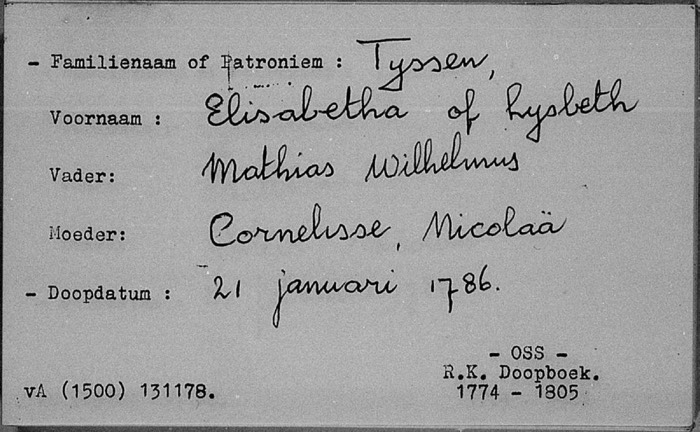 - Familienaam of Patroniem : Tyssen,
Voornaam : Elisabetha of Lysbeth
Vader: Mathias Wilhelmus
Moeder: Cornelisse, Nicolaä
- Doopdatum : 21 januari 1786.
- OSS -
R.K. Doopboek.
vA (1500) 131178. 1774 - 1805